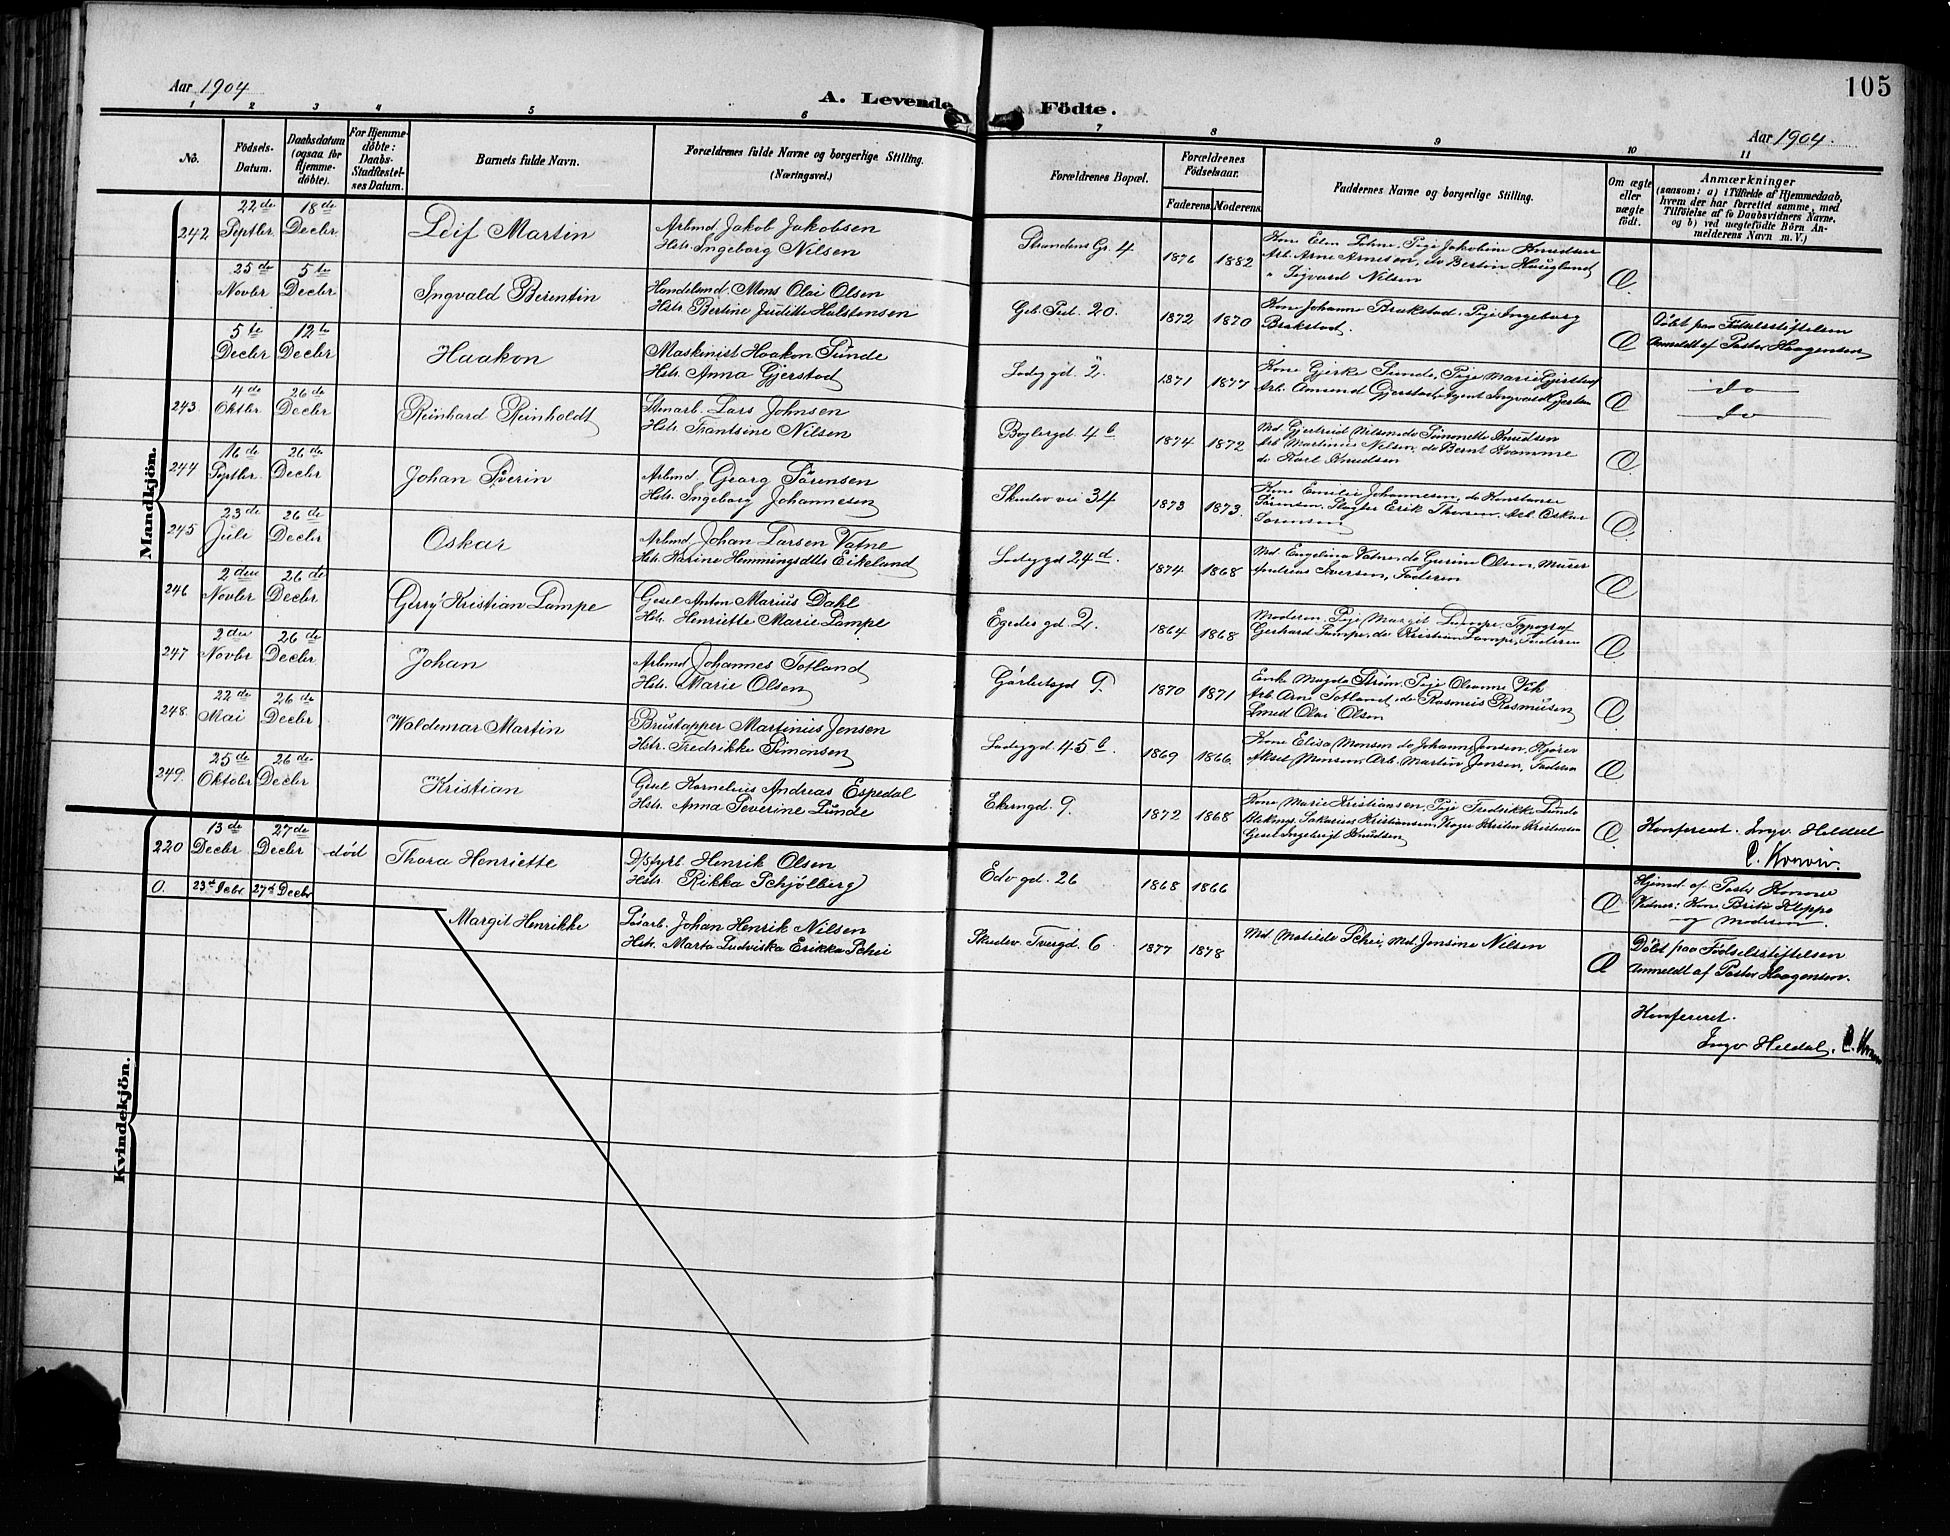 105
Aar 1904 A. Levende Födte. Aar 1904.
1 2 3 4 5 6 7 8 9 10 11
No. Födsels-Datum. Daabsdatum (ogsaa for Hjemmedøbte). For Hjemmedøbte: Daabs-Stadfæstelses Datum. Barnets fulde Navn. Forældrenes fulde Navne og borgerlige Stilling. (Næringsvei.) Forældrenes Bopæl. Forældrenes Födselsaar. Faderens. Moderens. Faddernes Navne og borgerlige Stilling. Om ægte eller uægte født. Anmærkninger (saasom: a) i Tilfælde af Hjemmedaab, hvem der har forrettet samme, med Tilføielse af to Daabsvidners Navne, og b) ved uægtefødte Börn Anmelderens Navn m. V.)
Mandkjön.
242 22de Septbr 18de Decbr Leif Martin Arbmd Jakob Jakobsen
Hstr. Ingeborg Nilsen
Strandens Gr. 4 1876 1882
Arb. Arne Arnesen, do Bertin Haugland
" Sigvard Nilsen Æ
25de Novbr 5te Decbr Ingvald Berentin Handelsmd Mons Olai Olsen
Hstr. Bertine Juditte Halstensen
Geb. Sed. 20. 1872 1870 Kone Johanne Brekstad. Pige Ingeborg
Brekstad. Æ Döbt paa Födselsstiftelsen
Anmeldt af Pastor Haagensen
5te Decbr 12te Decbr Haakon Maskinist Haakon Sunde
Hstr. Anna Gjerstad
Ladegd. 2. 1871 1877 Kone Gjerke Sunde, Pige Marie Gjerstad
Arb. Amund Gjerstad, Agent Ingvard Gjerstad Æ do
do
243. 4de Oktbr 26de Decbr Reinhard Reinholdt Stenarb. Lars Johnsen
Hstr. Frantsine Nilsen
4b 1874 1872 Md. Gjertrud Nilsen, do Simonette Knudsen
Arb Martinius Nilsen, do Bernt Kvamme
do Karl Knudsen Æ
244 16de Septbr 26de Decbr Johan Sverin Arbmd Georg Sörensen
Hstr. Ingeborg Johannesen
Skudev vei 34 1873 1873. Kone Emilie Johannesen, do Konstanse
Sörensen, Slagter Erik Thorsen, Arb. Oskar
Sorensen Æ
245 23de Juli 26de Decbr Oskar Arbmd Johan Larsen Vatne
Hstr. Karine Hemmingsdtts Eikeland
Ladegd 24d. 1874 1868 Md. Engelina Vatne, do Gurine Olsen, Murer
Andreas Iversen, Faderen Æ
246 2den Novbr 26de Decbr Gerry Kristian Lampe Gesel Anton Marius Dahl
Hstr. Henriette Marie Lampe
Egedes gd 2. 1864 1868 Moderen, Pige Margit Lampe, Typograf
Gerhard Lampe, do Kristian Lampe, Faderen Æ
247 2den Novbr 26de Decbr Johan Arbmd Johannes Totland
Hstr. Marie Olsen
9. 1870 1871 Enke Magda Ström, Pige Olianne Vik
Arb. Arne Totland, do Rasmus Rasmusen
Smed Olai Olsen Æ
248. 22de Mai 26de Decbr Waldemar Martin Brustapper Martinius Jensen
Hstr. Fredrikke Simonsen
Ladegd. 45b. 1869 1866 Kone Elisa Monsen do Johanne Jensen, Kjører
Aksel Monsen, Arb. Martin Jensen, Faderen Æ
249. 25de Oktober 26de Decbr Kristian Gesel Kornelius Andreas Espedal
Hstr. Anna Severine Lunde
9. 1872 1868 Kone Marie Kristiansen, Pige Fredrikke Lunde
Blekmgs. Sakarias Kristiansen, Kristen Kristensen
Gesel Ingebrigt Knudsen Æ Konfereret. Ingv. Heldal
Kvindekjön.
220 13de Decbr 27de Decbr död Thora Henriette D/Styrb. Henrik Olsen
Hstr. Rikka Schjölberg
Edv gd. 26 1868 1866 Æ Hjemd. af Pastor
Vidner: Kone Brita Kleppe
og Moderen.
0. 23de Decbr 27de Decbr Margit Henrikke Löarb. Johan Henrik Nilsen
Hstr. Marta Ludviska Erikka Schei
Skudev. Tvergd. 6 1877 1878 Md. Matilde Schei, Md. Jensine Nilsen Æ Döbt paa Födselsstiftelsen
Anmeldt af Pastor Haagensen.
Konfereret.
Ingv Heldal.